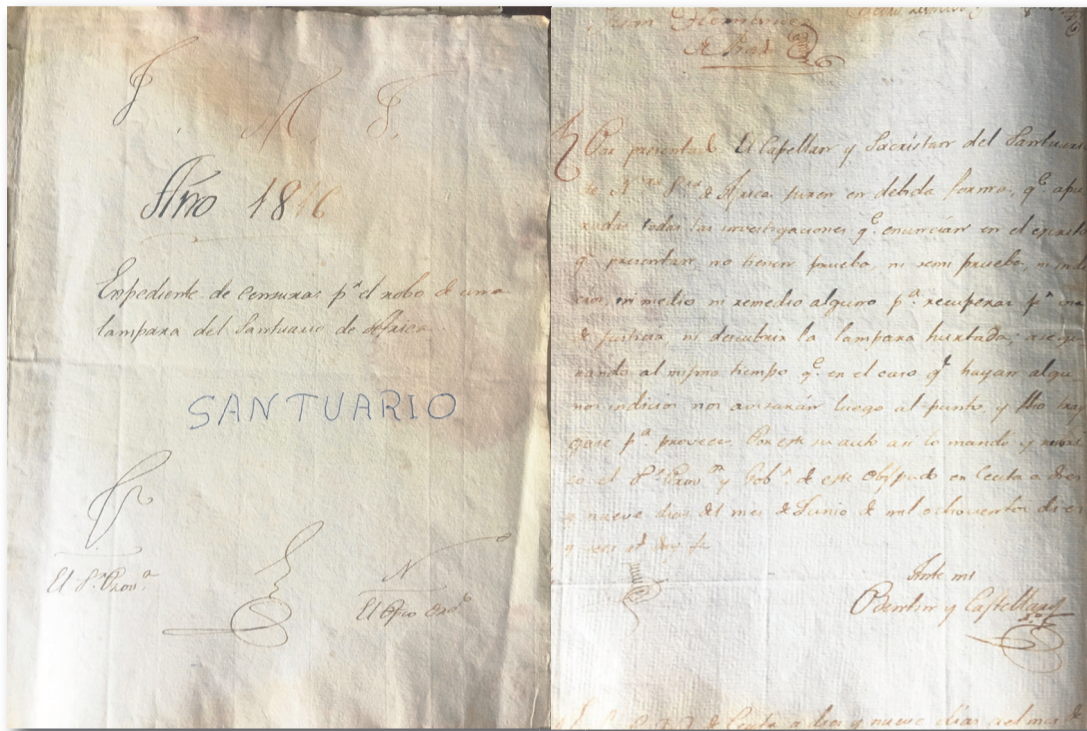 J. M. J.
Año 1816
Expediente de censuras pª el robo de una
lampara del Santuario de Africa.
SANTUARIO
El Sr Provr
N
El Ofico Ordo
Juan Hernandez
Por presentado El Capellan y Sacristan del Santuario
de Ntra Sra de Africa juren en debida forma, qe apu
radas todas las investigaciones qe enuncian en el escrito
qe presentan, no tienen prueba, ni semi prueba, ni indi
cios, ni medio ni remedio alguno pª recuperar pª
de justicia ni descubrir la lampara hurtada; asegu
rando al mismo tiempo qe en el caso qe hayan algu
nos indicios nos avisarán luego al punto, y
pª proveer. Por este su auto asi lo mandó y
el Sr Provr y Gobr de este Obispado en Ceuta a diez
y nueve dias del mes de Junio de mil ochocientos diez
y seis
Ante mi
y Castellano
de Ceuta a diez y nueve dias del mes de